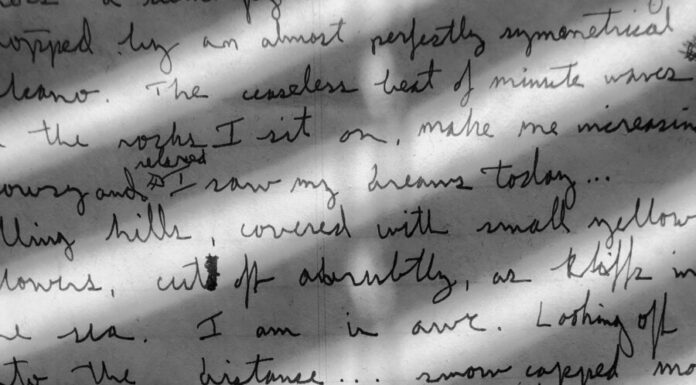 opped by an almost perfectly symmetrical
lcano. The ceaseless beat of minute waves
the rocks I sit on, make me increasin
relaxed
owsy and I saw my dreams today...
lling hills, covered with small yellow
lowers, cut off abrubtly, as kliffs in
e sea. I am in awe. Looking off
to the distance... snow capped mo